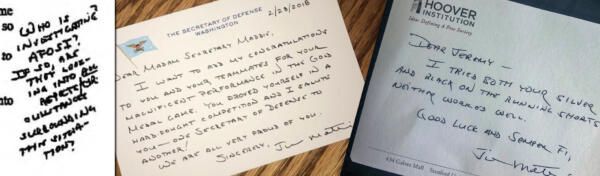 me
so
to
nto
WHO IS
INVESTIGATING
AFOSI?
IF SO, ARE
THEY LOOK-
ING INTO ALL
CUMSTANCES
SURROUNDING
THE SECRETARY OF DEFENSE
WASHINGTON
2/28/2018
DEAR MADAM SECRETARY MADDIE,
I WANT TO ADD MY CONGRATULATIONS
TO YOU AND YOUR TEAMMATES FOR YOUR
MAGNIFICENT PERFORMANCE IN THE GOLD
MEDAL GAME. YOU PROVED YOURSELF IN A
HARD FOUGHT COMPETITION AND I SALUTE
YOU—ONE SECRETARY OF DEFENSE TO
ANOTHER!
WE ARE ALL VERY PROUD OF YOU.
SINCERELY,
HOOVER
INSTITUTION
Ideas Defining A Free Society
DEAR JEREMY—
I TRIED BOTH YOUR SILVER
AND BLACK ON THE RUNNING SHORTS
NEITHER WORKED WELL.
GOOD LUCK AND SEMPER FI,
434 Galvez Mall